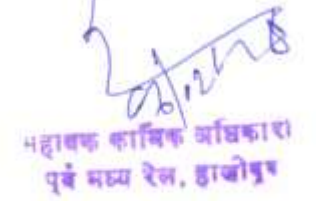 सहायक कार्मिक अधिकारी
पूर्व मध्य रेल, हाजीपुर